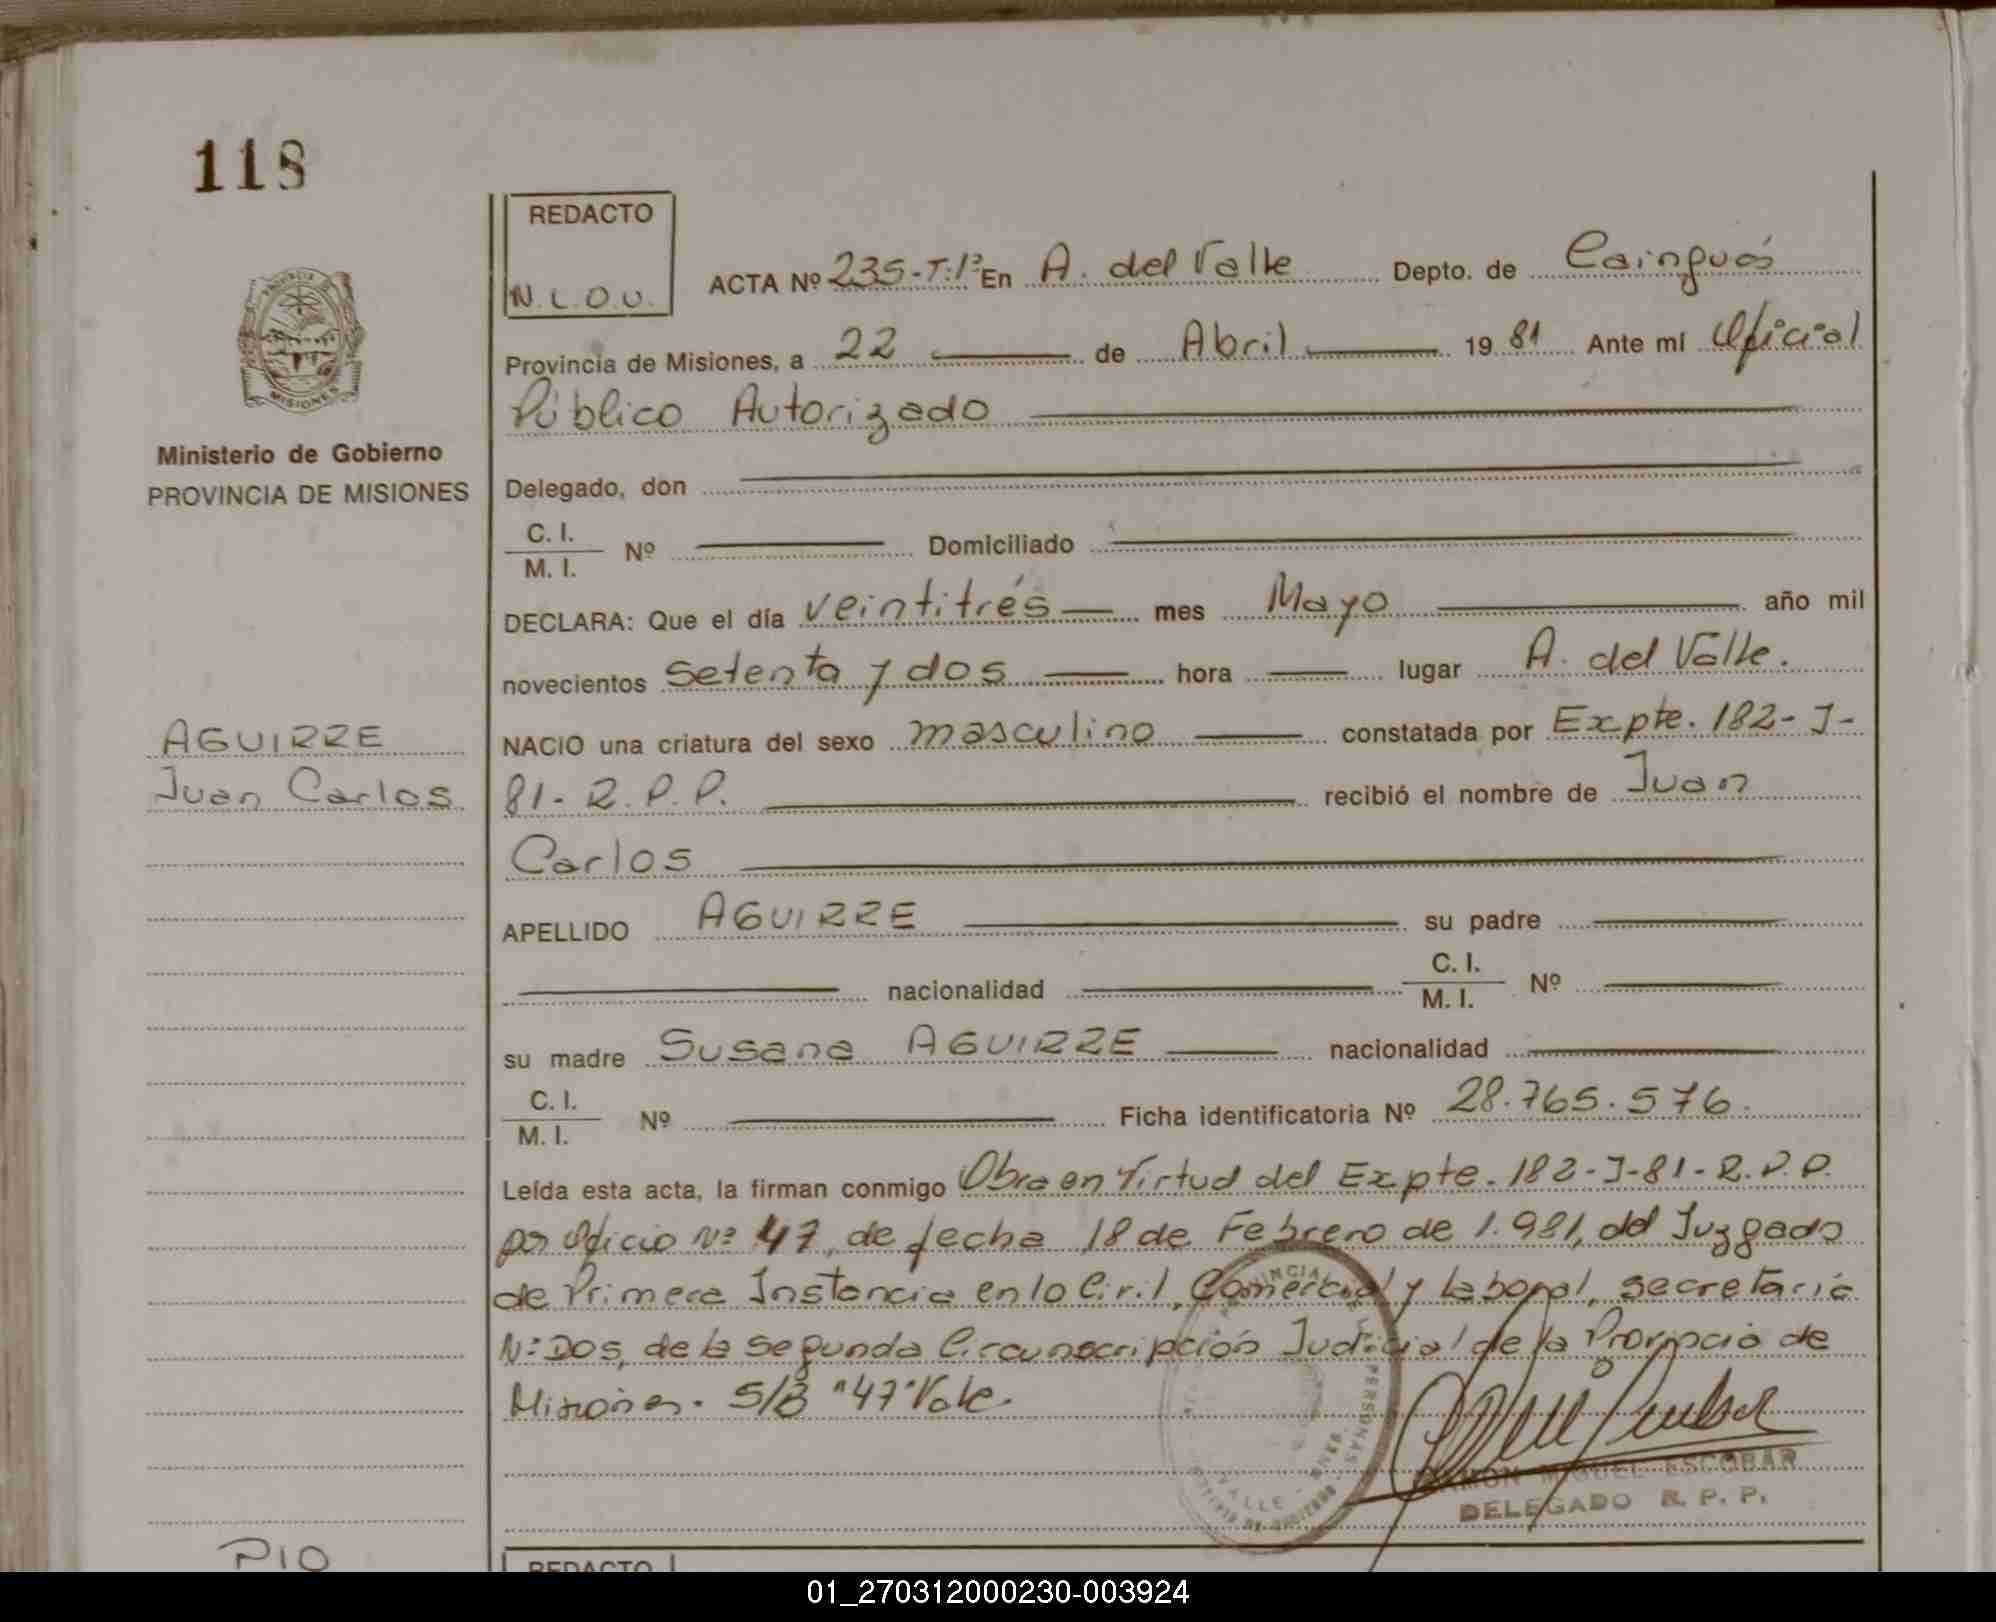 118
PROVINCIA DE
MISIONES
Ministerio de Gobierno
PROVINCIA DE MISIONES
AGUIRRE
Juan Carlos
REDACTO
N.L.O.U.
ACTA Nº 235-T:1º En A. del Valle Depto. de Cainguás
Provincia de Misiones, a 22 de Abril 19 81 Ante mí Oficial
Público Autorizado
Delegado, don
C. I.
M. I. Nº Domiciliado
DECLARA: Que el día veintitrés mes Mayo año mil
novecientos setenta y dos hora lugar A. del Valle.
NACIO una criatura del sexo masculino constatada por Expte. 182-J-
81-R.P.P. recibió el nombre de Juan
Carlos
APELLIDO AGUIRRE su padre
nacionalidad C. I.
M. I. Nº
su madre Susana AGUIRRE nacionalidad
C. I.
M. I. Nº Ficha identificatoria Nº 28.765.576.
Leída esta acta, la firman conmigo Obra en Virtud del Expte. 182-J-81-R.P.P.
por Oficio Nº 47, de fecha 18 de Febrero de 1.981, del Juzgado
de Primera Instancia en lo Civil, Comercial y Laboral, secretaría
Nº DOS, de la segunda Circunscripción Judicial de la Provincia de
Misiones. S/B "47" Vale.
RAMON MIGUEL ESCOBAR
DELEGADO R. P. P.
PIO
REDACTO
01_270312000230-003924